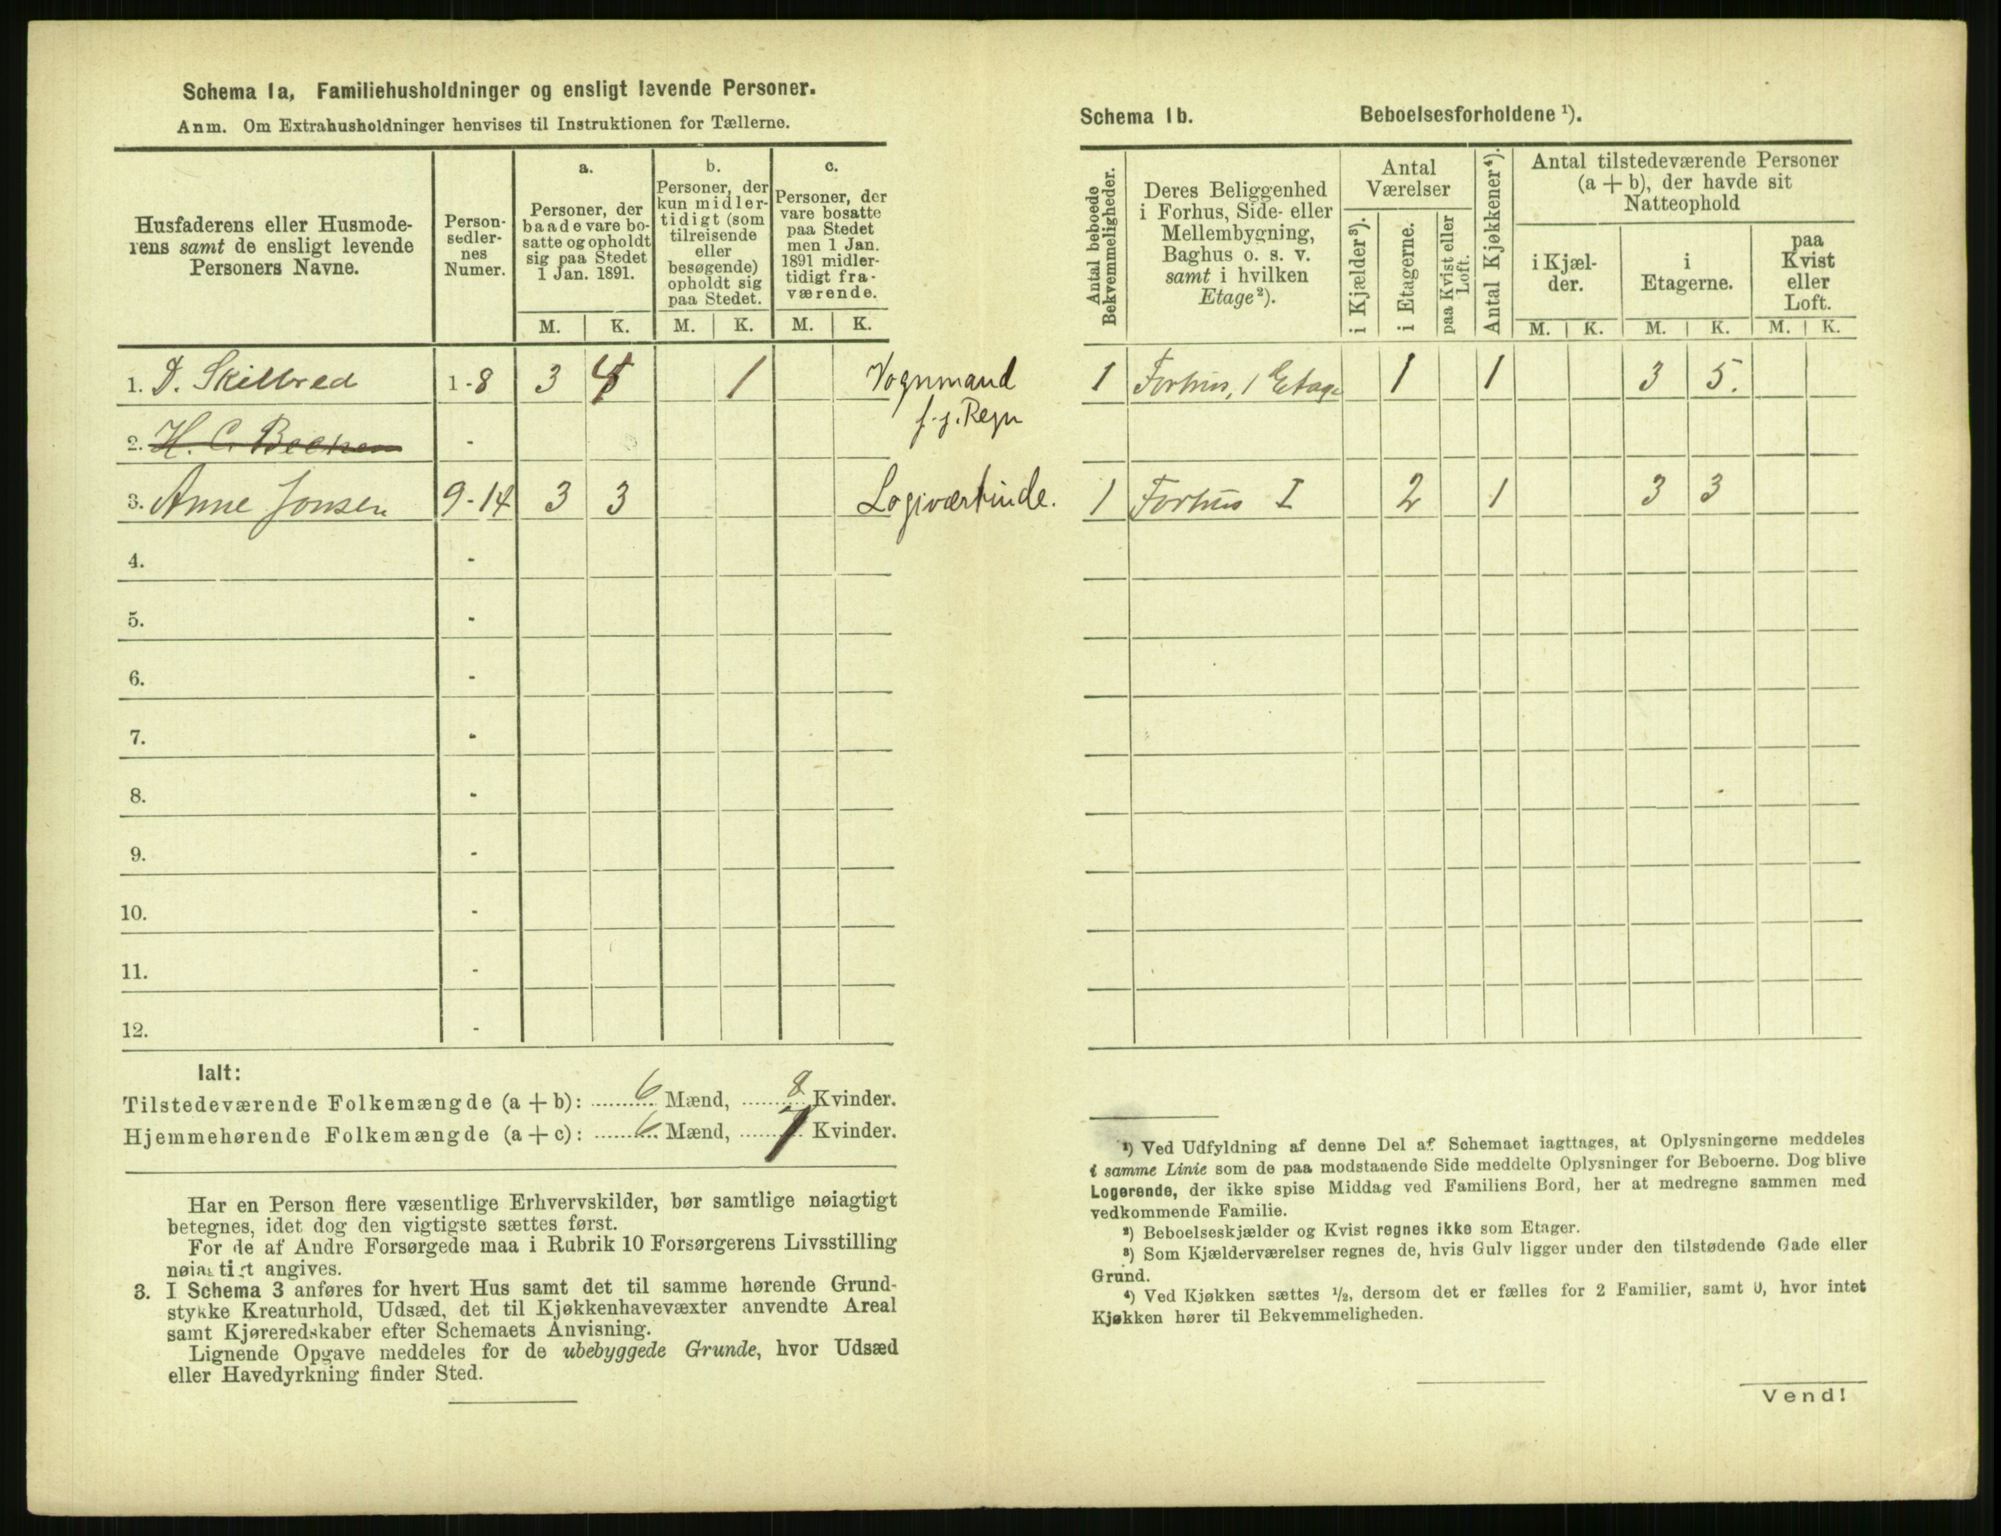 Schema 1a, Familiehusholdninger og ensligt levende Personer.
Anm. Om Extrahusholdninger henvises til Instruktionen for Tællerne.
Husfaderens eller Husmoderens samt de ensligt levende Personers Navne.
Person-sedlernes Numer.
a.
Personer, der baade vare bosatte og opholdt sig paa Stedet 1 Jan. 1891.
b.
Personer, der kun midlertidigt (som tilreisende eller besøgende) opholdt sig paa Stedet.
c.
Personer, der vare bosatte paa Stedet men 1 Jan. 1891 midlertidigt fraværende.
M. K. M. K. M. K.
1. D. Skilbred 1-8 3 4 1 Vognmand
f. j. Regn
2. H. C. -
3. Anne Jonsen 9-14 3 3 Logiværtinde.
4. -
5. -
6. -
7. -
8. -
9. -
10. -
11. -
12. -
Ialt:
Tilstedeværende Folkemængde (a + b): 6 Mænd, 8 Kvinder.
Hjemmehørende Folkemængde (a + c): 6 Mænd, 7 Kvinder.
Har en Person flere væsentlige Erhvervskilder, bør samtlige nøiagtigt
betegnes, idet dog den vigtigste sættes først.
For de af Andre Forsørgede maa i Rubrik 10 Forsørgerens Livsstilling
nøiagtigt angives.
3. I Schema 3 anføres for hvert Hus samt det til samme hørende Grund-
stykke Kreaturhold, Udsæd, det til Kjøkkenhavevæxter anvendte Areal
samt Kjøreredskaber efter Schemaets Anvisning.
Lignende Opgave meddeles for de ubebyggede Grunde, hvor Udsæd
eller Havedyrkning finder Sted.
Schema 1b. Beboelsesforholdene ¹).
Antal beboede Bekvemmeligheder.
Deres Beliggenhed i Forhus, Side- eller Mellembygning, Baghus o. s. v. samt i hvilken Etage²).
Antal Værelser
i Kjælder³).
i Etagerne.
paa Kvist eller Loft.
Antal Kjøkkener⁴).
Antal tilstedeværende Personer (a + b), der havde sit Natteophold
i Kjælder.
i Etagerne.
paa Kvist eller Loft.
M. K. M. K. M. K.
1 Forhus, 1 Etage 1 1 3 5.
1 Forhus I 2 1 3 3
¹) Ved Udfyldning af denne Del af Schemaet iagttages, at Oplysningerne meddeles
i samme Linie som de paa modstaaende Side meddelte Oplysninger for Beboerne. Dog blive
Logerende, der ikke spise Middag ved Familiens Bord, her at medregne sammen med
vedkommende Familie.
²) Beboelseskjælder og Kvist regnes ikke som Etager.
³) Som Kjælderværelser regnes de, hvis Gulv ligger under den tilstødende Gade eller
Grund.
⁴) Ved Kjøkken sættes ½, dersom det er fælles for 2 Familier, samt 0, hvor intet
Kjøkken hører til Bekvemmeligheden.
Vend!